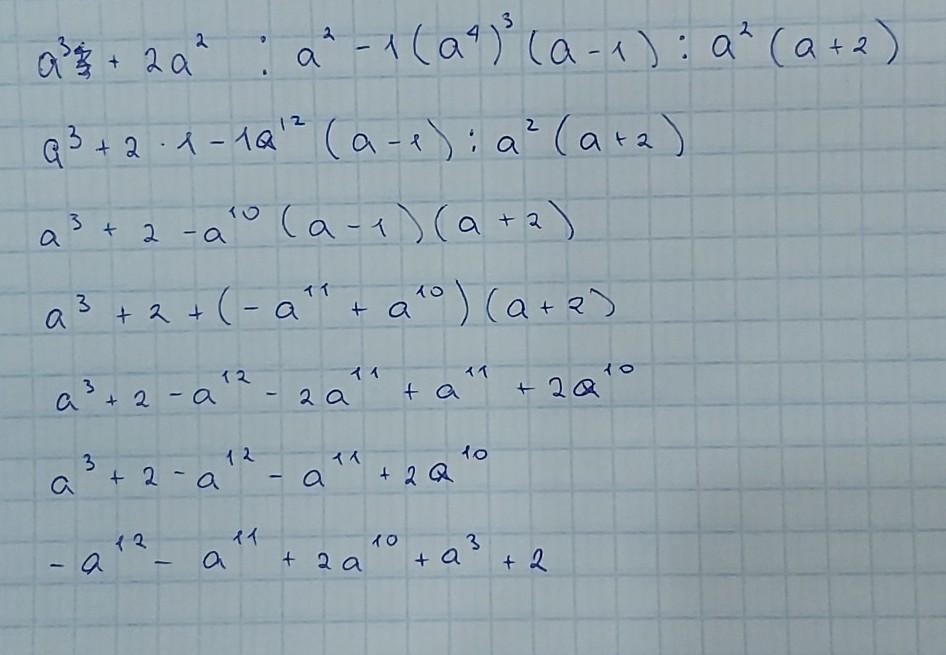 a³ + 2a² : a² - 1(a⁴)³(a - 1) : a²(a + 2)
a³ + 2 · 1 - 1a¹²(a - 1) : a²(a + 2)
a³ + 2 - a¹⁰(a - 1)(a + 2)
a³ + 2 + (-a¹¹ + a¹⁰)(a + 2)
a³ + 2 - a¹² - 2a¹¹ + a¹¹ + 2a¹⁰
a³ + 2 - a¹² - a¹¹ + 2a¹⁰
-a¹² - a¹¹ + 2a¹⁰ + a³ + 2